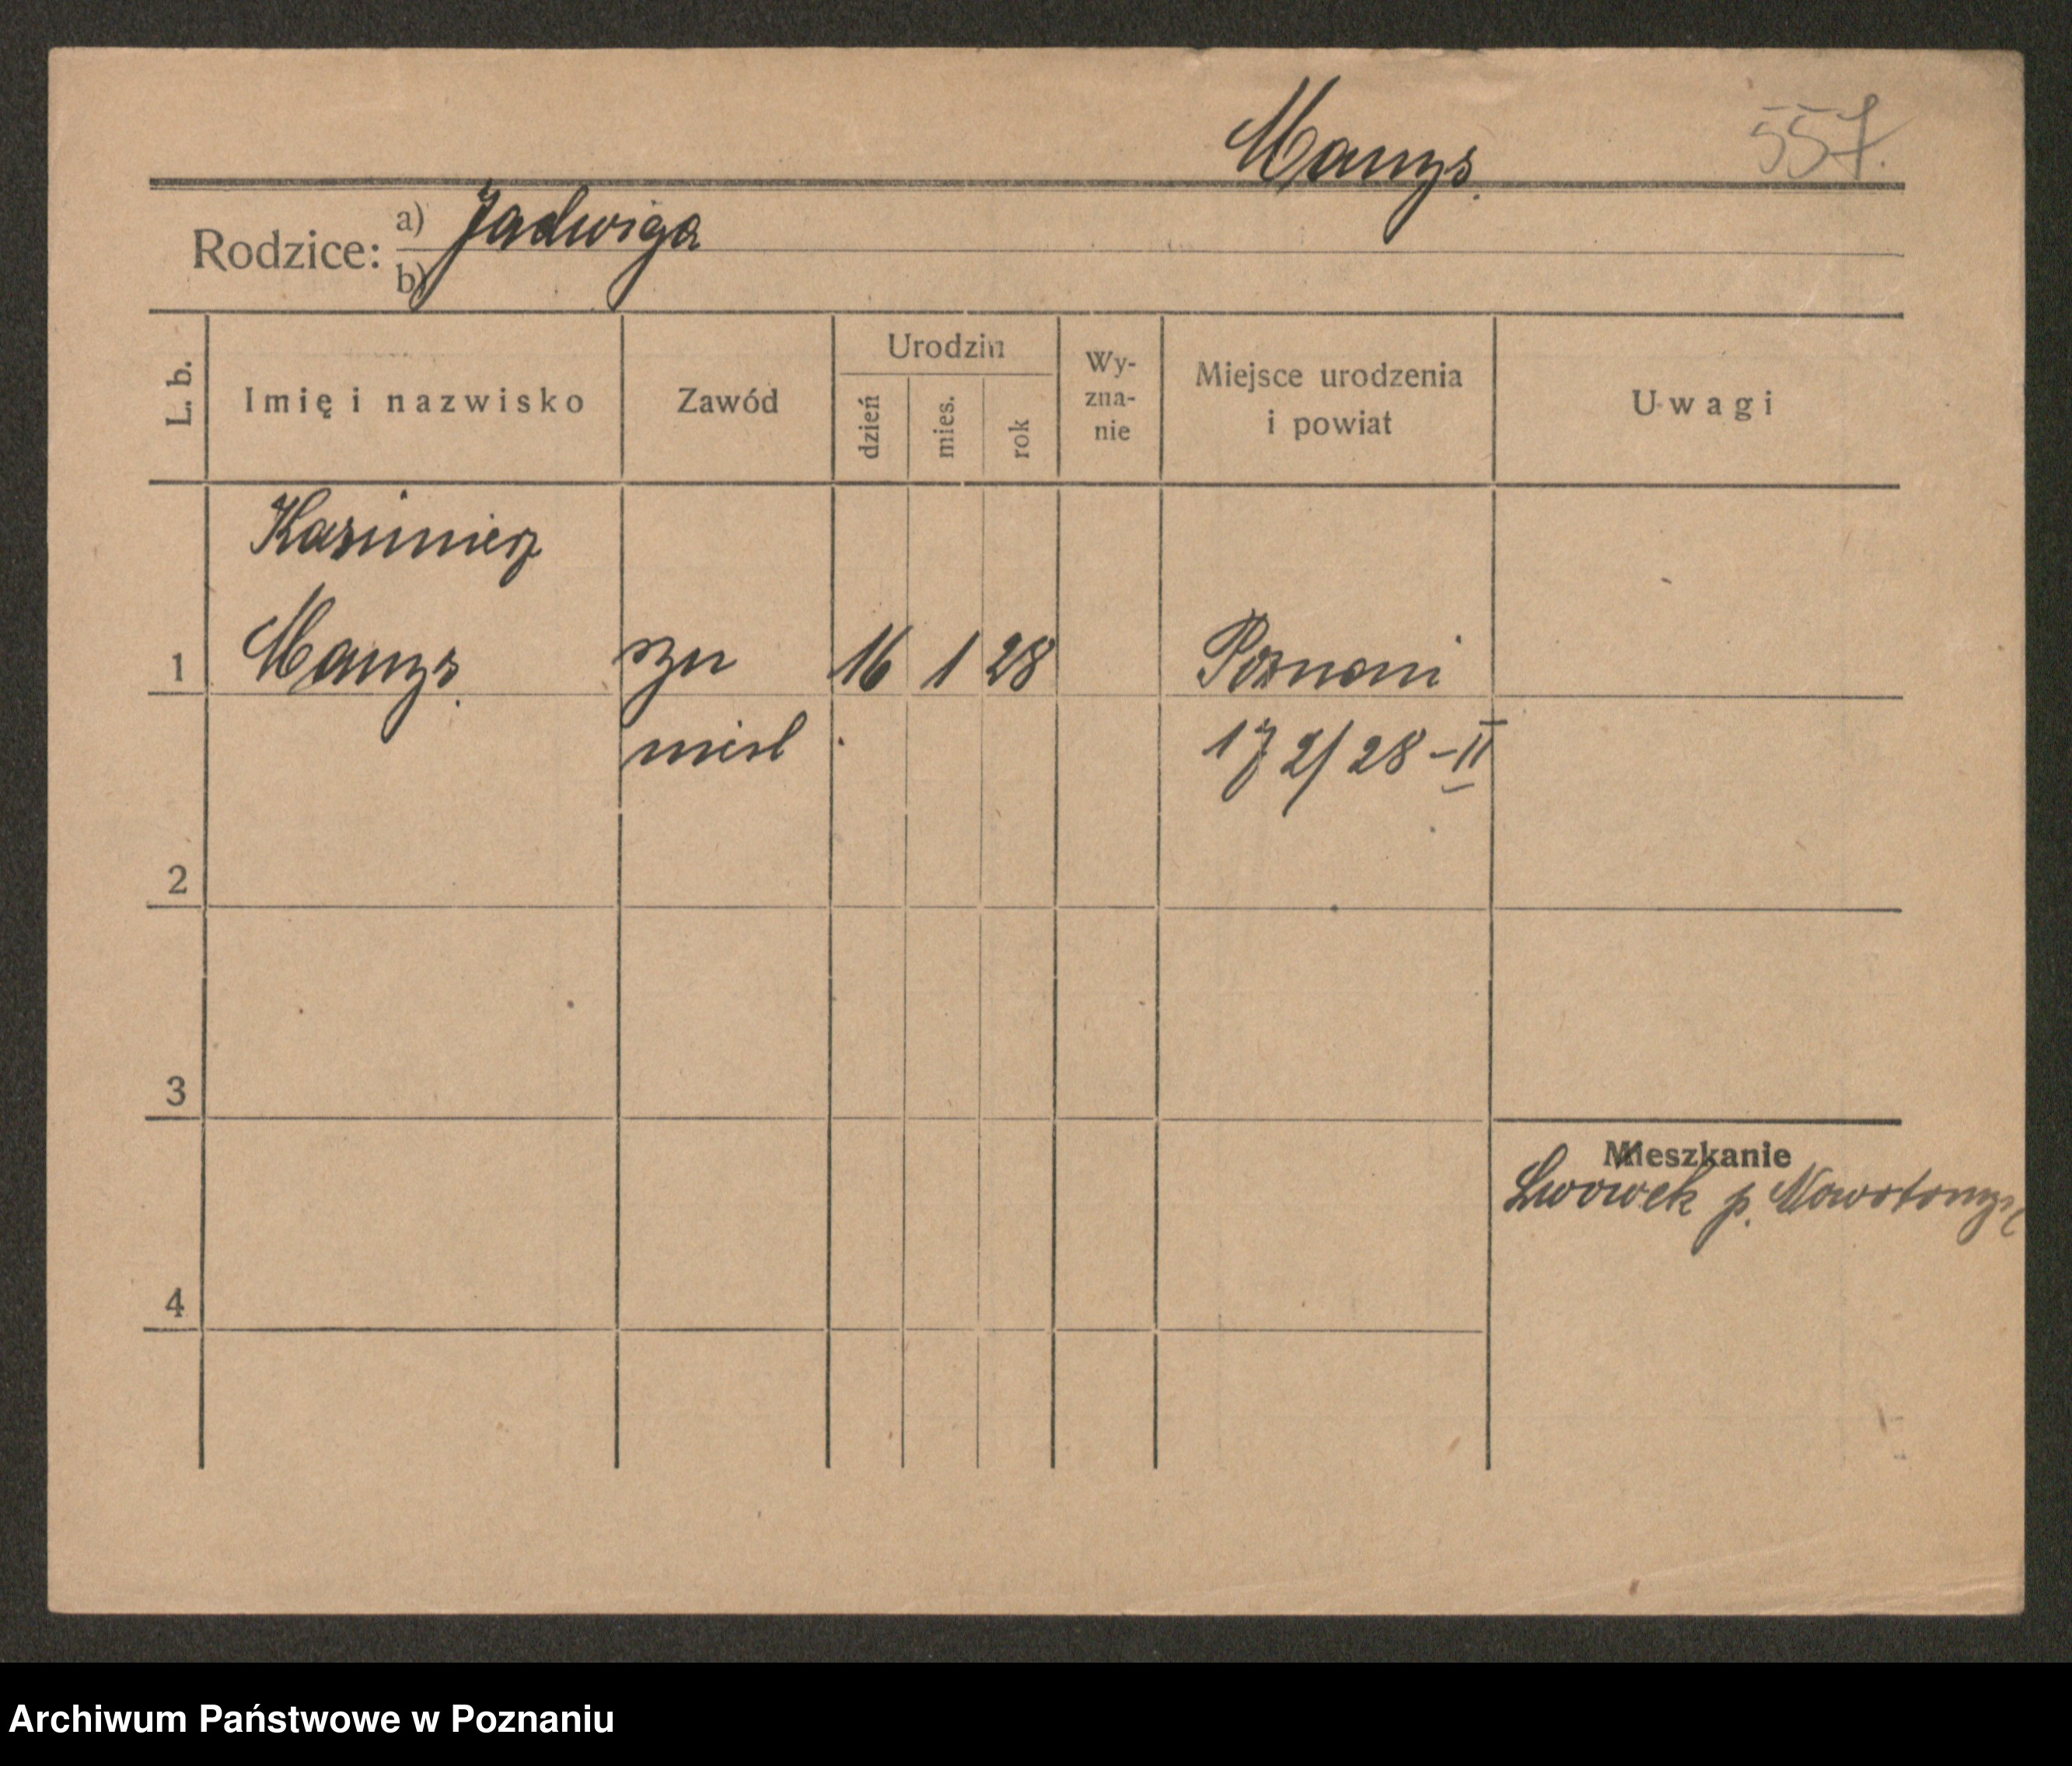 Manys.
557.
Rodzice: a) Jadwiga
b)
L. b. Imię i nazwisko Zawód Urodzin dzień mies. rok Wy-zna-nie Miejsce urodzenia i powiat Uwagi
Kazimierz
1 Manys. syn 16 1 28 Poznań
172/28-II
2
3
Mieszkanie
Lwówek p. Nowotomys
4
Archiwum Państwowe w Poznaniu